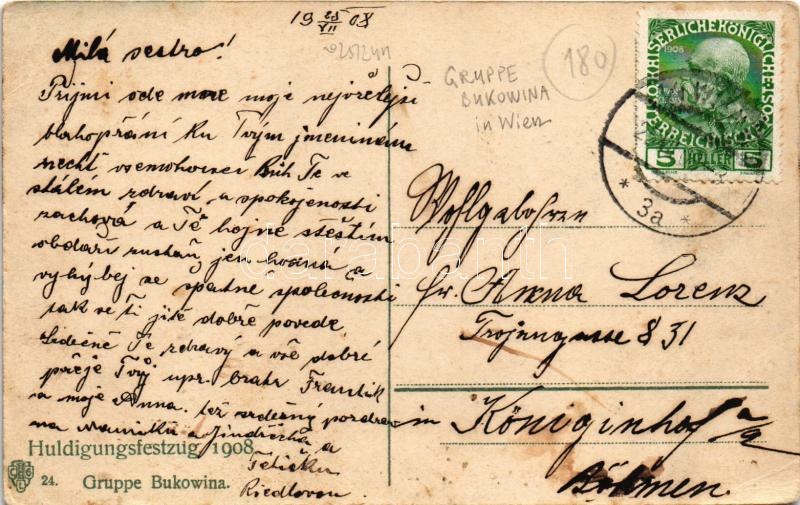 19 25/VII 08
Milá sestro!
Přijmi ode mne moje nejvřelejší
blahopřání ku Tvým jmeninám
nechť všemohoucí Bůh Tě ve
stálem zdraví a spokojenosti
zachová a Tě hojně štěstím
obdaří zustaň jen hodná a
vyhýbej se spatne společnosti
tak se Ti jistě dobře povede.
Srdečně Tě zdravý a vše dobré
přeje Tvůj upr. bratr František
a moje Anna. též srdečný pozdrav
na Maminku a Jindřicha
a
Tetičku
Riedlovou.
GRUPPE
BUKOWINA
in Wien
180
KAISERLICHE KÖNIGLICHE
1908
OESTERREICHISCHE
5 HELLER 5
* 3a *
Wohlgeboren
Fr. Anna Lorenz
Trojangasse 831
in Königinhof a/E
Böhmen.
darabanth
Huldigungsfestzug 1908
24. Gruppe Bukowina.